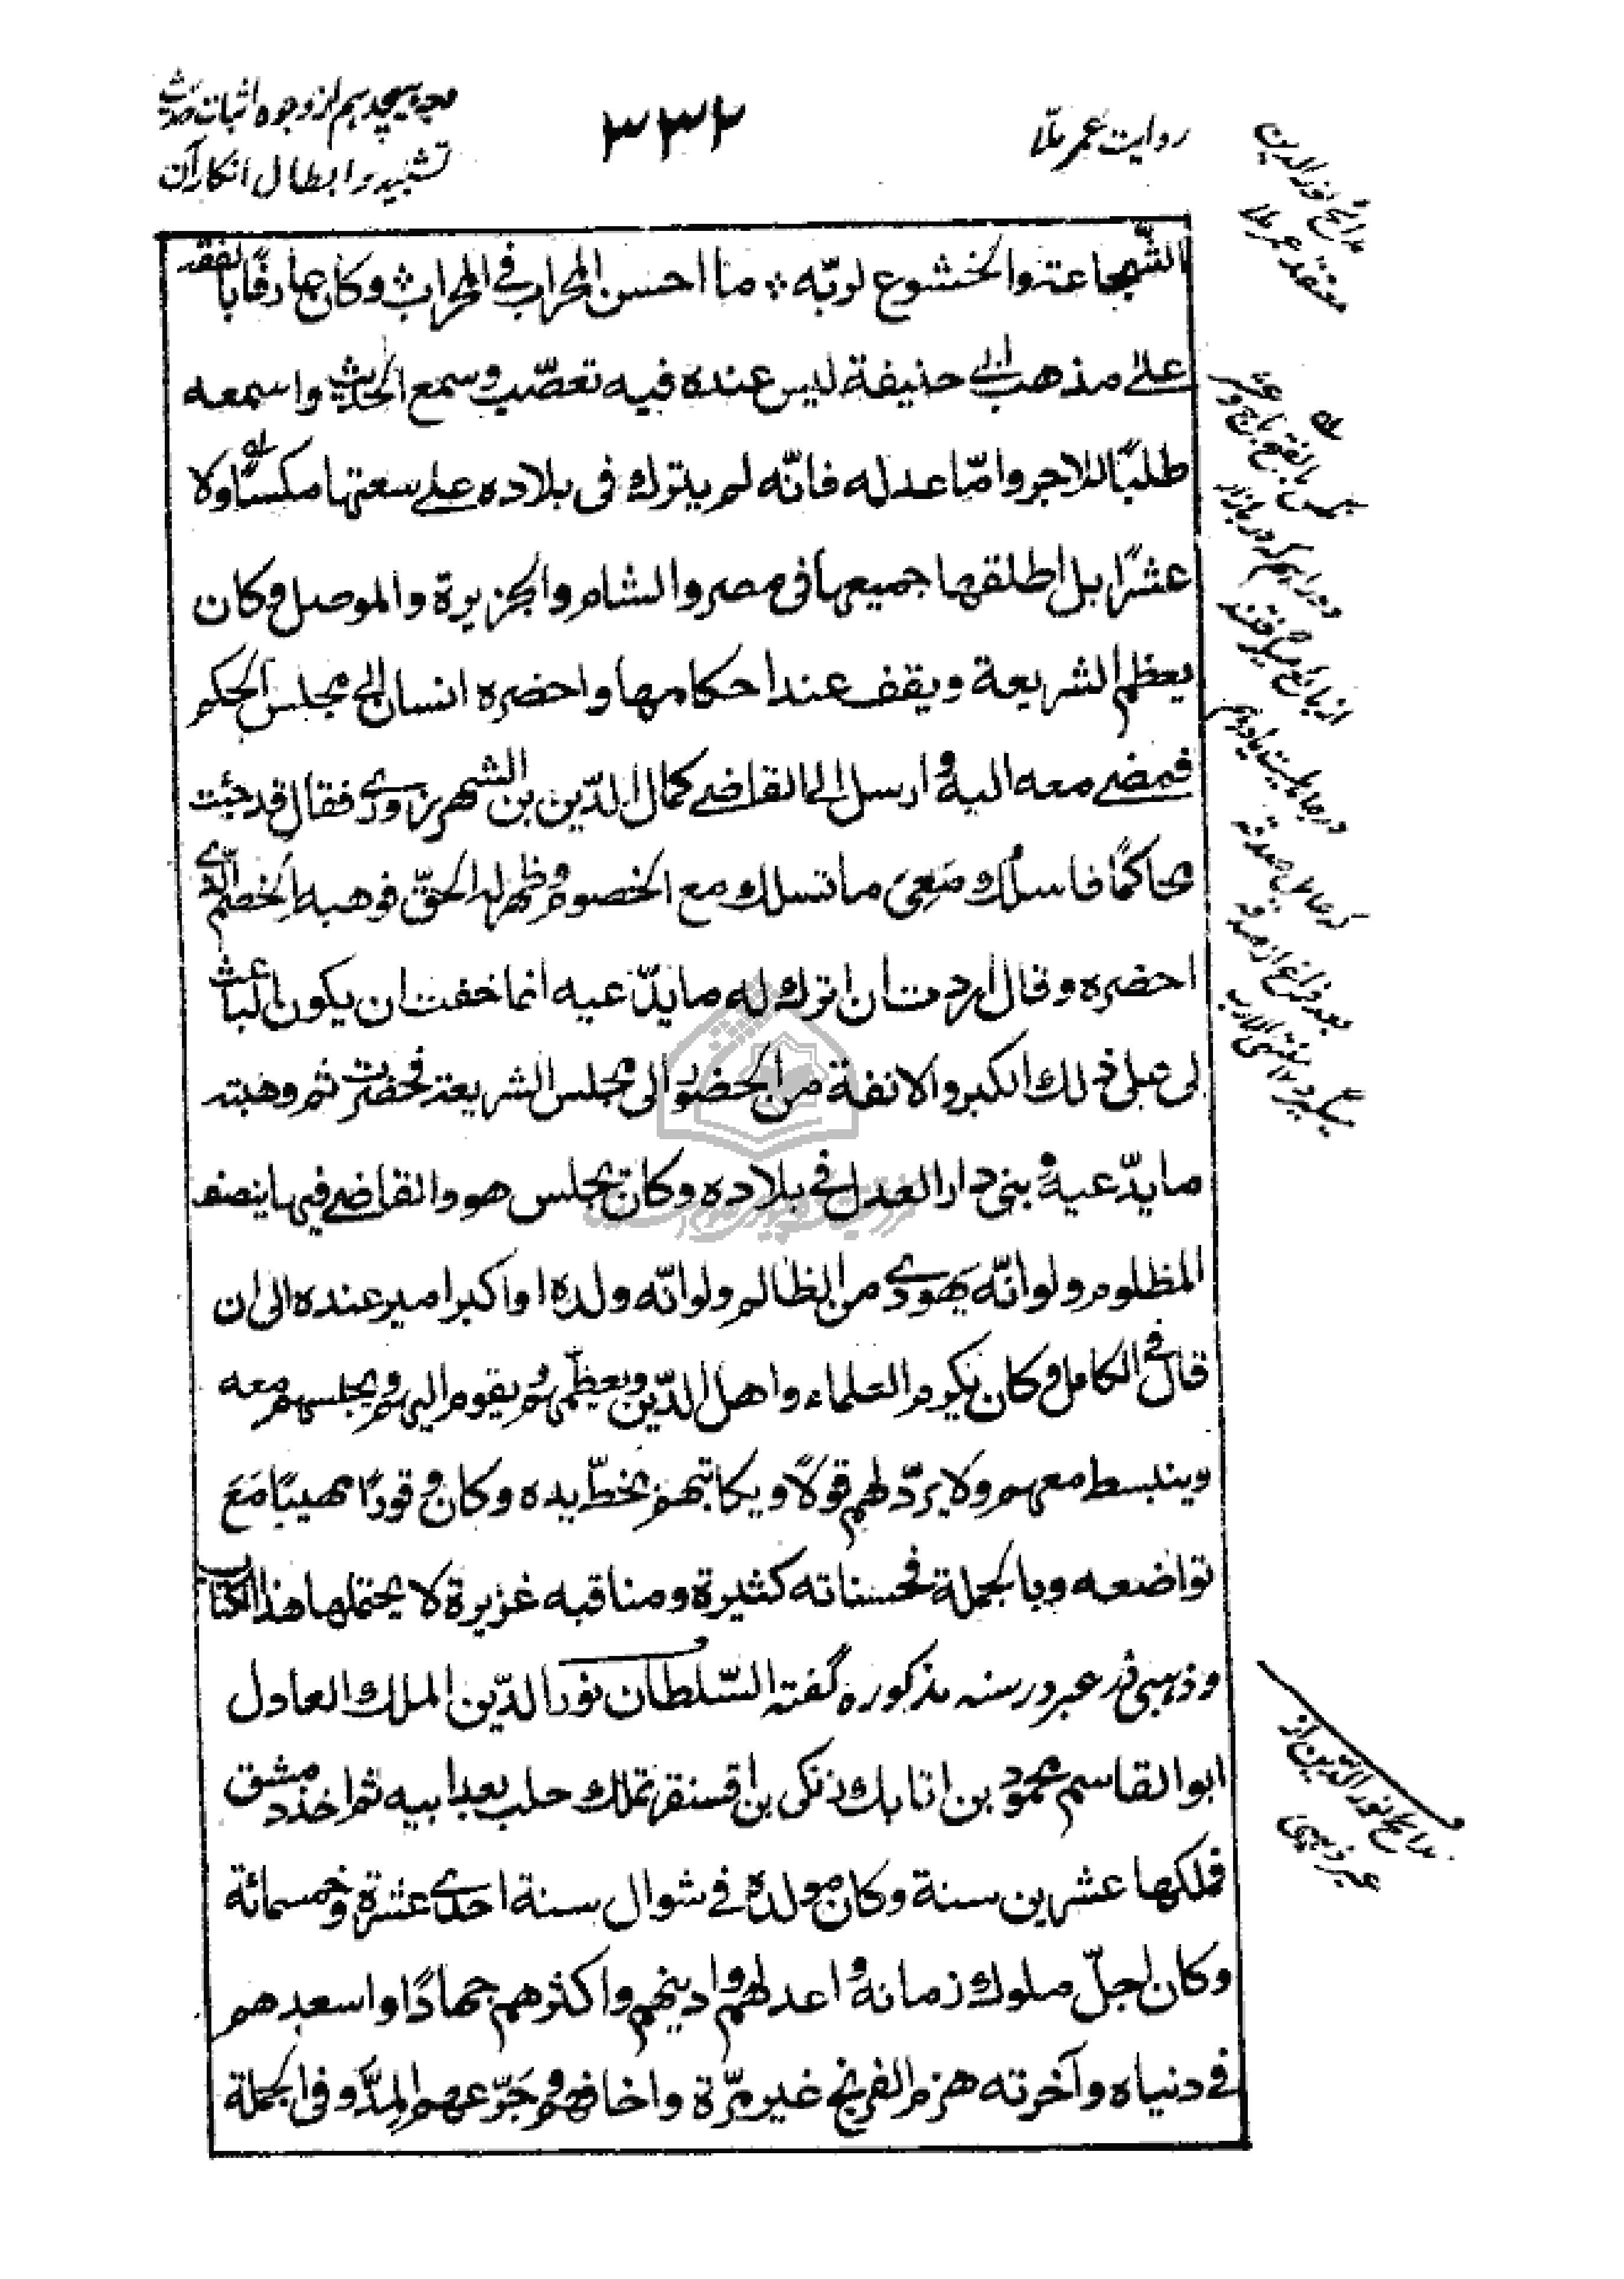 روایت عمر ملّا
۳۳۲
وجه هیجدهم از وجوه اثبات حدیث
تشبیه و ابطال انکار آن
الشّجاعة والخشوع لربّه ؞ ما احسن المحراب فی المحراب وکان عارفًا بالفقه
علی مذهب ابی حنیفة لیس عنده فیه تعصّب وسمع الحدیث واسمعه
طلبًا للاجر وامّا عدله فانّه لم یترک فی بلاده علی سعتها مکسًا ولا
عشرًا بل اطلقها جمیعها فی مصر والشام والجزیرة والموصل وکان
یعظم الشریعة ویقف عند احکامها واحضره انسان الی مجلس الحکم
فمضی معه الیه وارسل الی القاضی کمال الدّین بن الشهرزوری فقال قد جئت
محاکمًا فاسلک معی ما تسلک مع الخصوم وظهر له الحقّ فوهبه الخصم الّذی
احضره وقال اردت ان اترک له ما یدّعیه انما خفت ان یکون الباعث
لی علی ذلک الکبر والانفة من الحضور الی مجلس الشریعة فحضرت ثم وهبته
ما یدّعیه وبنی دار العدل فی بلاده وکان یجلس هو والقاضی فیها ینصف
المظلوم ولو انّه یهودی من الظالم ولو انّه ولده او اکبر امیر عنده الی ان
قال فی الکامل وکان یکرم العلماء واهل الدّین ویعظّمهم ویقوم الیهم ویجلسهم معه
وینبسط معهم ولا یردّ لهم قولًا ویکاتبهم بخطّ یده وکان وقورًا مهیبًا مَعَ
تواضعه وبالجملة فحسناته کثیرة ومناقبه غزیرة لا یحتملها هذا الکتاب
وذهبی در عبر در سنه مذکوره گفته السّلطان نور الدّین الملک العادل
ابو القاسم محمود بن اتابک زنکی بن اقسنقر تملک حلب بعد ابیه ثم اخذ دمشق
فملکها عشرین سنة وکان مولده فی شوال سنة احدی عشرة وخمسمائة
وکان اجلّ ملوک زمانه واعدلهم وادینهم واکثرهم جهادًا واسعدهم
فی دنیاه وآخرته هزم الفرنج غیر مرّة واخافهم وجَرّعهم المرّ وفی الجملة
مدائح نور الدین
معتقد عمر ملا
مدائح نور الدّین از
عبر ذهبی